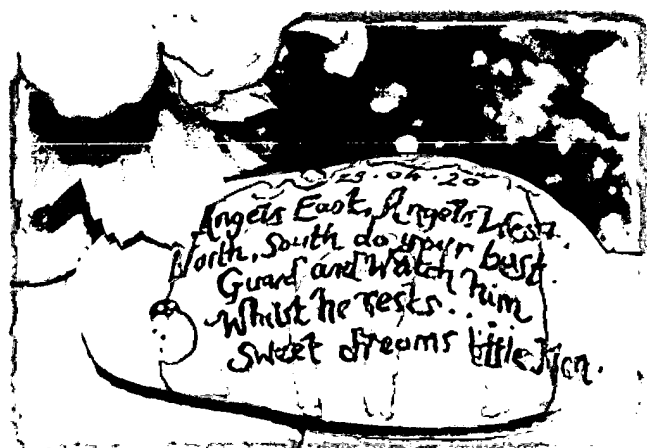 Angels East, Angels West.
North, South do your best.
Guard and Watch him
Whilst he rests...
Sweet dreams little